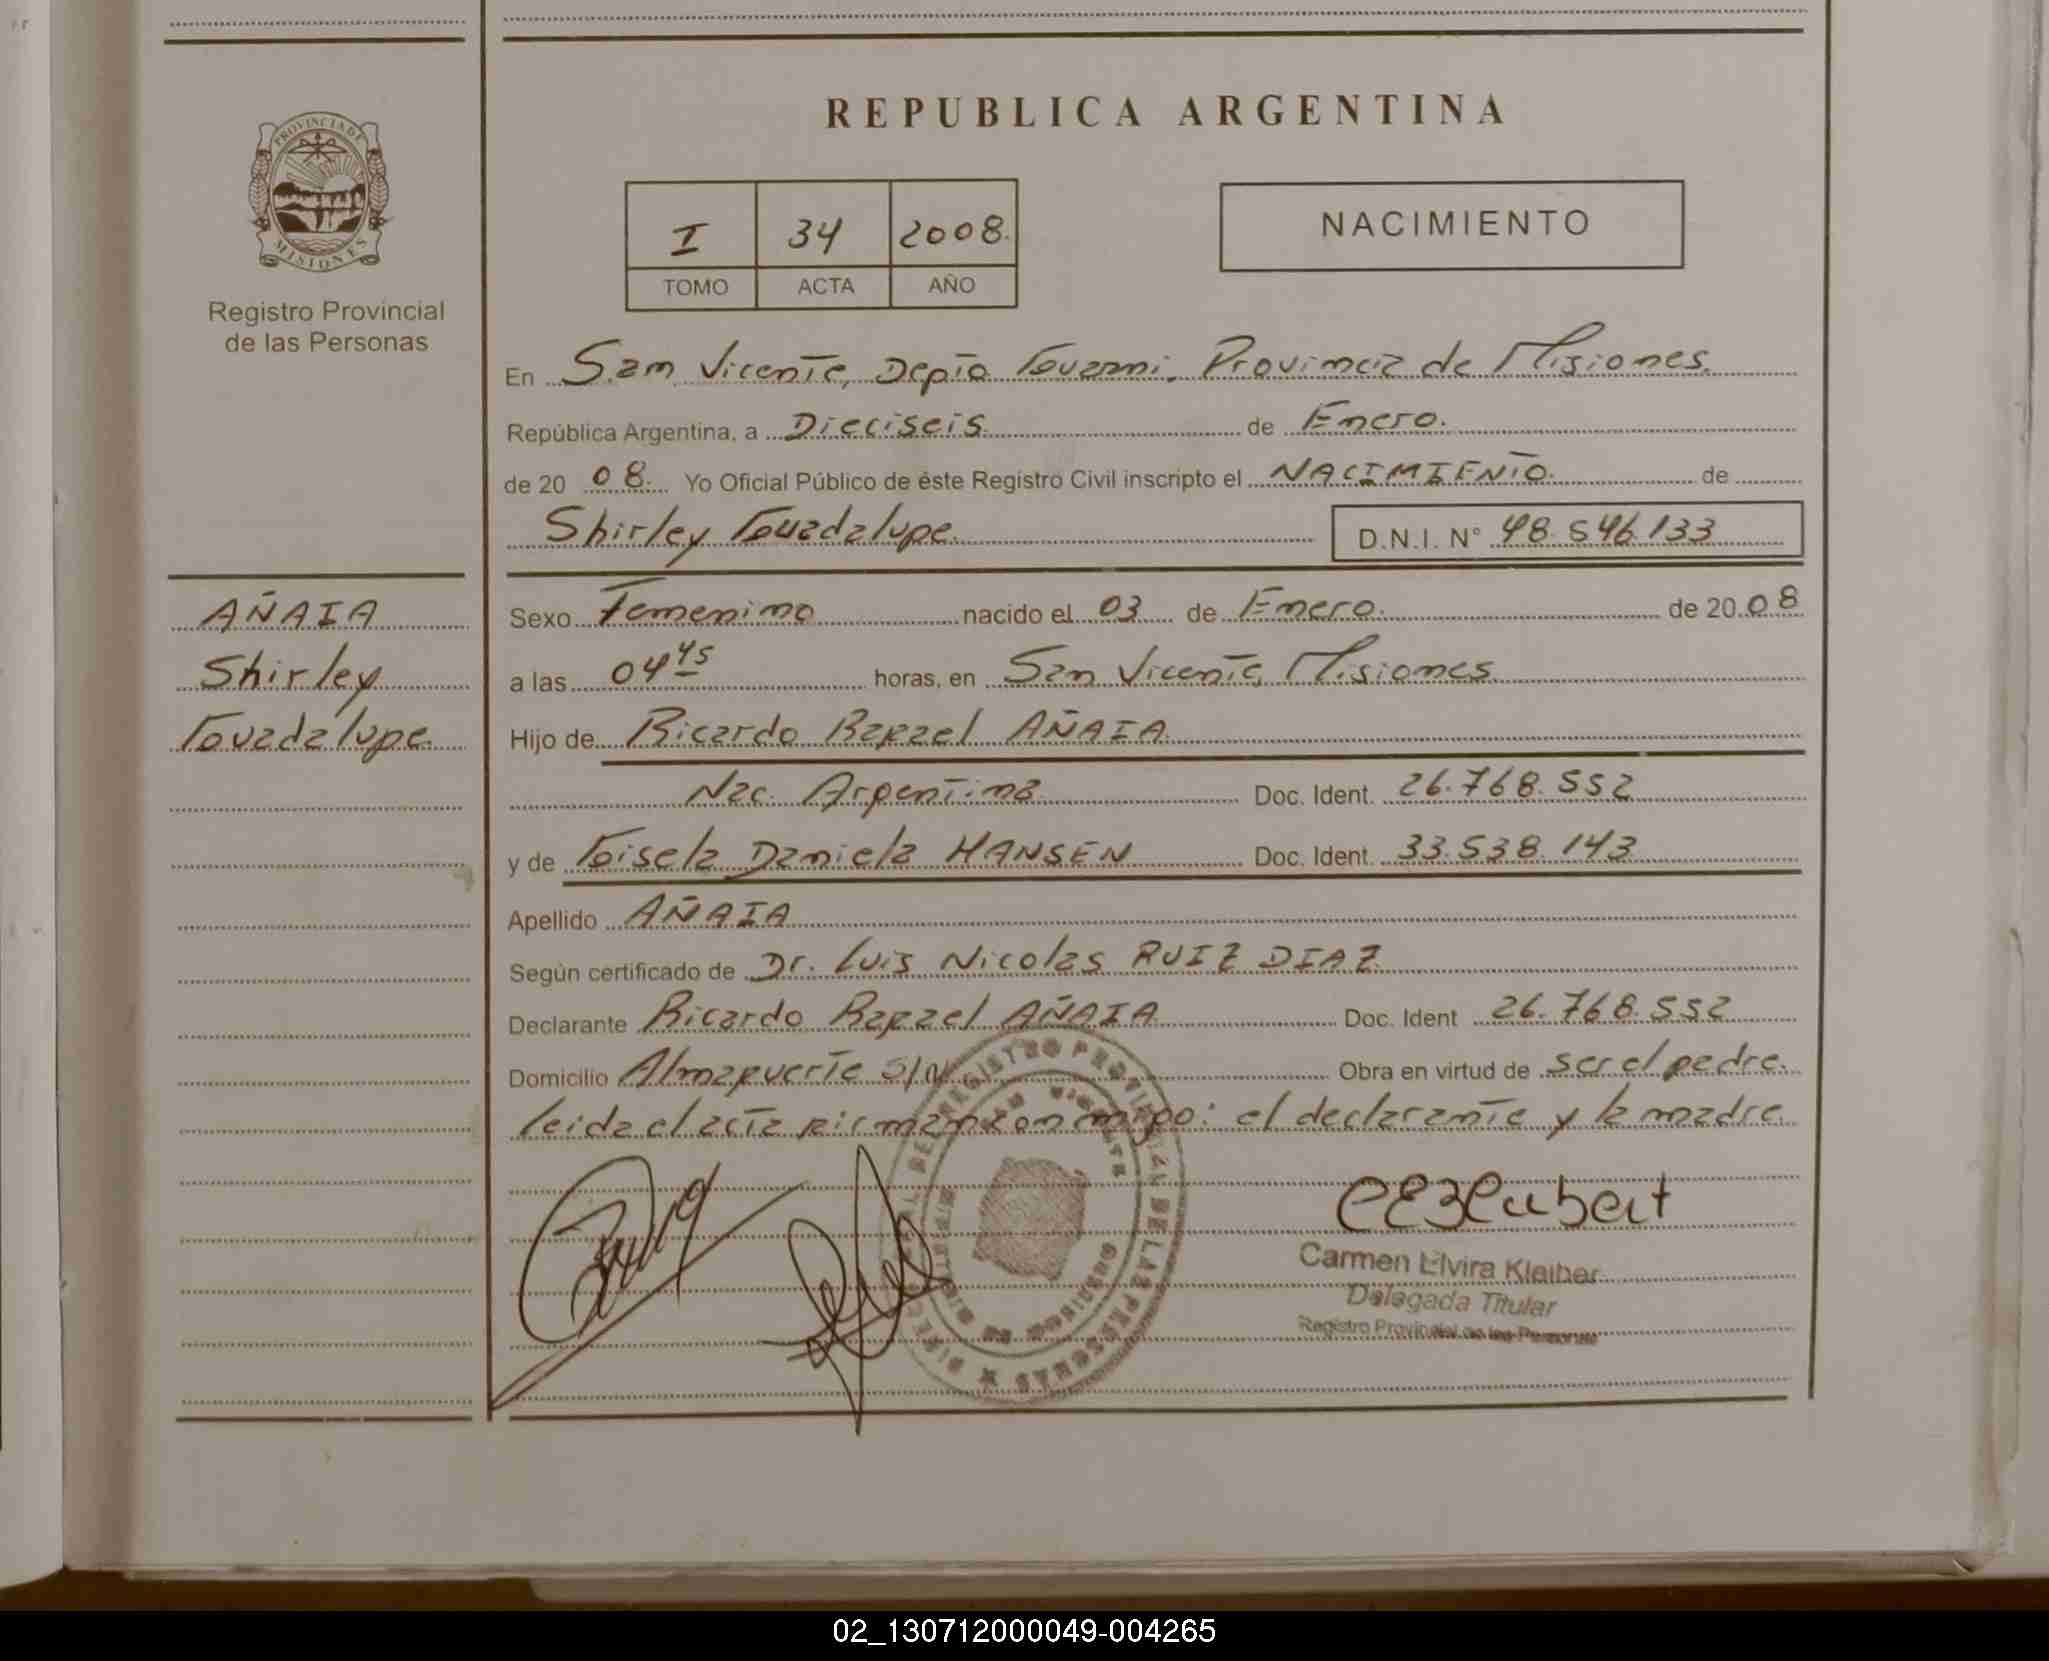 REPUBLICA ARGENTINA
PROVINCIA DE
MISIONES
Registro Provincial
de las Personas
I 34 2008.
TOMO ACTA AÑO
NACIMIENTO
En San Vicente, Depto Guarani. Provincia de Misiones.
República Argentina, a Dieciseis. de Enero.
de 20 08. Yo Oficial Público de éste Registro Civil inscripto el NACIMIENTO. de
Shirley Guadalupe. D.N.I. N° 48.546.133
AÑAIA
Shirley
Guadalupe.
Sexo Femenino nacido el 03 de Enero. de 20 08
a las 04 45 horas, en San Vicente, Misiones
Hijo de Ricardo Rafael AÑAIA
Nac. Argentina Doc. Ident. 26.768.552
y de Gisela Daniela HANSEN Doc. Ident. 33.538.143
Apellido AÑAIA
Según certificado de Dr. Luis Nicolas RUIZ DIAZ
Declarante Ricardo Rafael AÑAIA Doc. Ident 26.768.552
Domicilio Almafuerte S/N Obra en virtud de ser el padre.
leida el acta firman con migo: el declarante y la madre.
REGISTRO PROVINCIAL DE LAS PERSONAS
Carmen Elvira Kleiber
Delegada Titular
Registro Provincial de las Personas
02_130712000049-004265